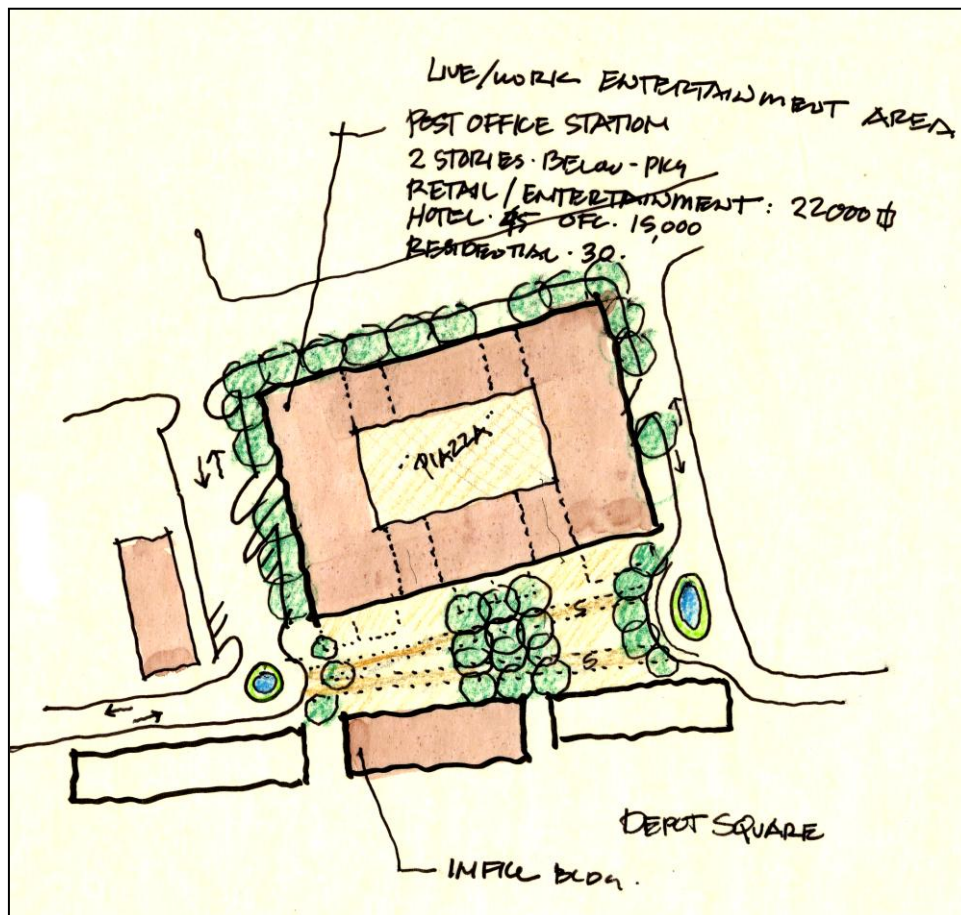 LIVE/WORK ENTERTAINMENT AREA
POST OFFICE STATION
2 STORIES · BELOW - PKG
RETAIL / ENTERTAINMENT : 22000
HOTEL · 45 OFC. 15,000
RESIDENTIAL · 30.
"PIAZZA"
S
S
DEPOT SQUARE
INFILL BLDG.